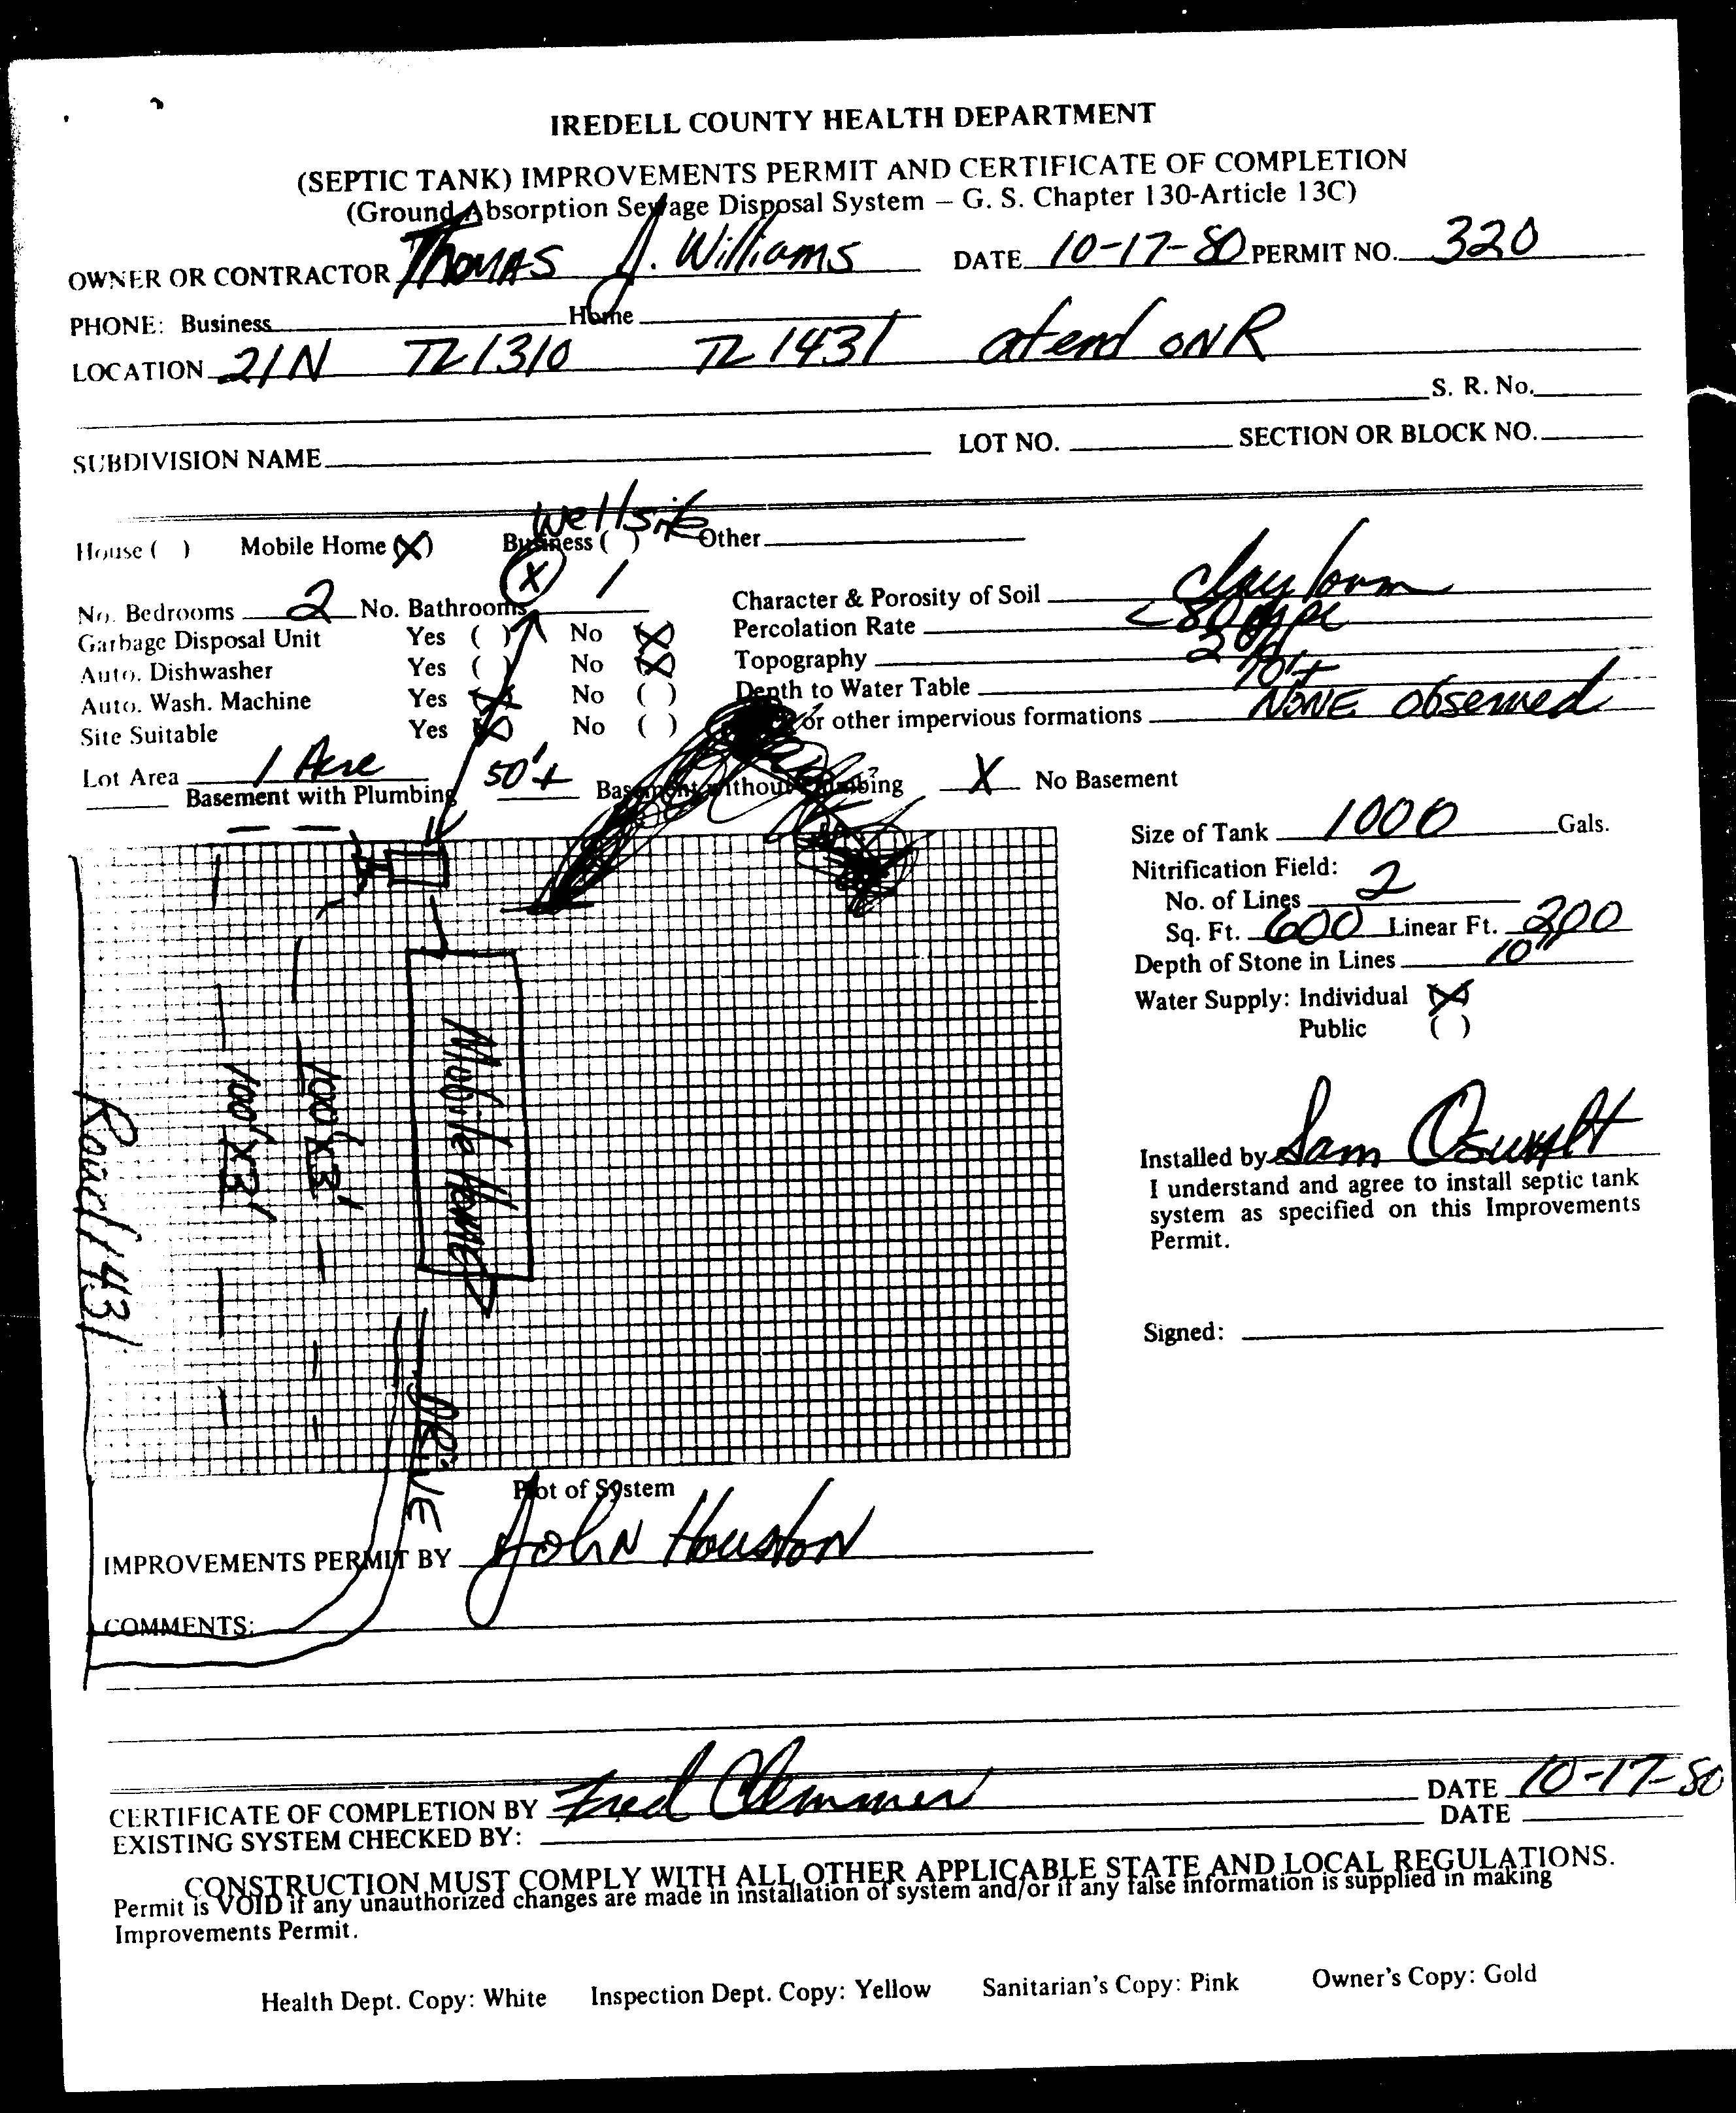 IREDELL COUNTY HEALTH DEPARTMENT
(SEPTIC TANK) IMPROVEMENTS PERMIT AND CERTIFICATE OF COMPLETION
(Ground Absorption Sewage Disposal System – G. S. Chapter 130-Article 13C)
OWNER OR CONTRACTOR Thomas J. Williams DATE 10-17-80 PERMIT NO. 320
PHONE: Business Home
LOCATION 21N TL 1310 TL 1431 at end on R
S. R. No.
SUBDIVISION NAME LOT NO. SECTION OR BLOCK NO.
Wellsite
House ( ) Mobile Home (X) Business ( ) Other
X
No. Bedrooms 2 No. Bathrooms 1
Garbage Disposal Unit Yes ( ) No (X)
Auto. Dishwasher Yes ( ) No (X)
Auto. Wash. Machine Yes (X) No ( )
Site Suitable Yes (X) No ( )
Character & Porosity of Soil Clay loam
Percolation Rate <80 mpi
Topography
Depth to Water Table 10'+
or other impervious formations NONE observed
Lot Area 1 Acre 50'+
Basement with Plumbing Basement without Plumbing X No Basement
Size of Tank 1000 Gals.
Nitrification Field:
No. of Lines 2
Sq. Ft. 600 Linear Ft. 200
Depth of Stone in Lines 10"
Water Supply: Individual (X)
Public ( )
Road 1431
100'X3'
100'X3'
Mobile Home
DRIVE
Installed by Sam Oswalt
I understand and agree to install septic tank
system as specified on this Improvements
Permit.
Signed:
Plot of System
IMPROVEMENTS PERMIT BY John Houston
COMMENTS:
CERTIFICATE OF COMPLETION BY Fred Clemmer DATE 10-17-80
EXISTING SYSTEM CHECKED BY: DATE
CONSTRUCTION MUST COMPLY WITH ALL OTHER APPLICABLE STATE AND LOCAL REGULATIONS.
Permit is VOID if any unauthorized changes are made in installation of system and/or if any false information is supplied in making
Improvements Permit.
Health Dept. Copy: White Inspection Dept. Copy: Yellow Sanitarian's Copy: Pink Owner's Copy: Gold